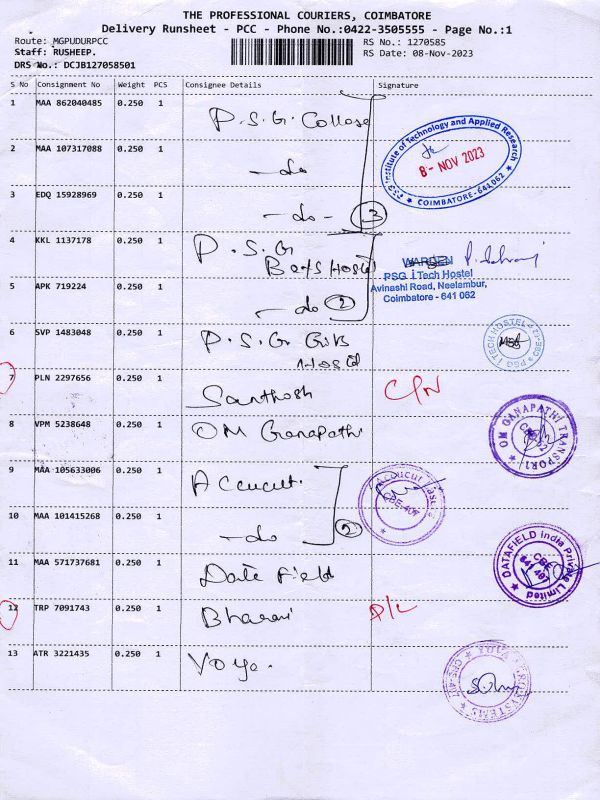 THE PROFESSIONAL COURIERS, COIMBATORE
Delivery Runsheet - PCC - Phone No.:0422-3505555 - Page No.:1
Route: MGPUDURPCC
RS No.: 1270585
Staff: RUSHEEP.
RS Date: 08-Nov-2023
DRS No.: DCJB127058501
S No Consignment No Weight PCS Consignee Details Signature
1 MAA 862040485 0.250 1 P.S.G. College
2 MAA 107317088 0.250 1 -do
PSG Institute of Technology and Applied Research
8- NOV 2023
★ COIMBATORE-641 062 ★
3 EDQ 15928969 0.250 1 -do- 3
4 KKL 1137178 0.250 1 P.S.G
Boys Hostel
WARDEN
PSG iTech Hostel
Avinashi Road, Neelambur,
Coimbatore - 641 062
5 APK 719224 0.250 1 -do 2
6 SVP 1483048 0.250 1 P.S.G. Girls
Hostel
PSG I TECH HOSTEL
7 PLN 2297656 0.250 1 Santhosh C/N
8 VPM 5238648 0.250 1 OM Ganapathi
OM GANAPATHY TRANSPORT
9 MAA 105633006 0.250 1 Accucut
CBE-407
10 MAA 101415268 0.250 1 -do 2
11 MAA 571737681 0.250 1 Date Field
DATAFIELD India Private Limited
CBE
641 407
12 TRP 7091743 0.250 1 Bharani D/L
13 ATR 3221435 0.250 1 Voya.